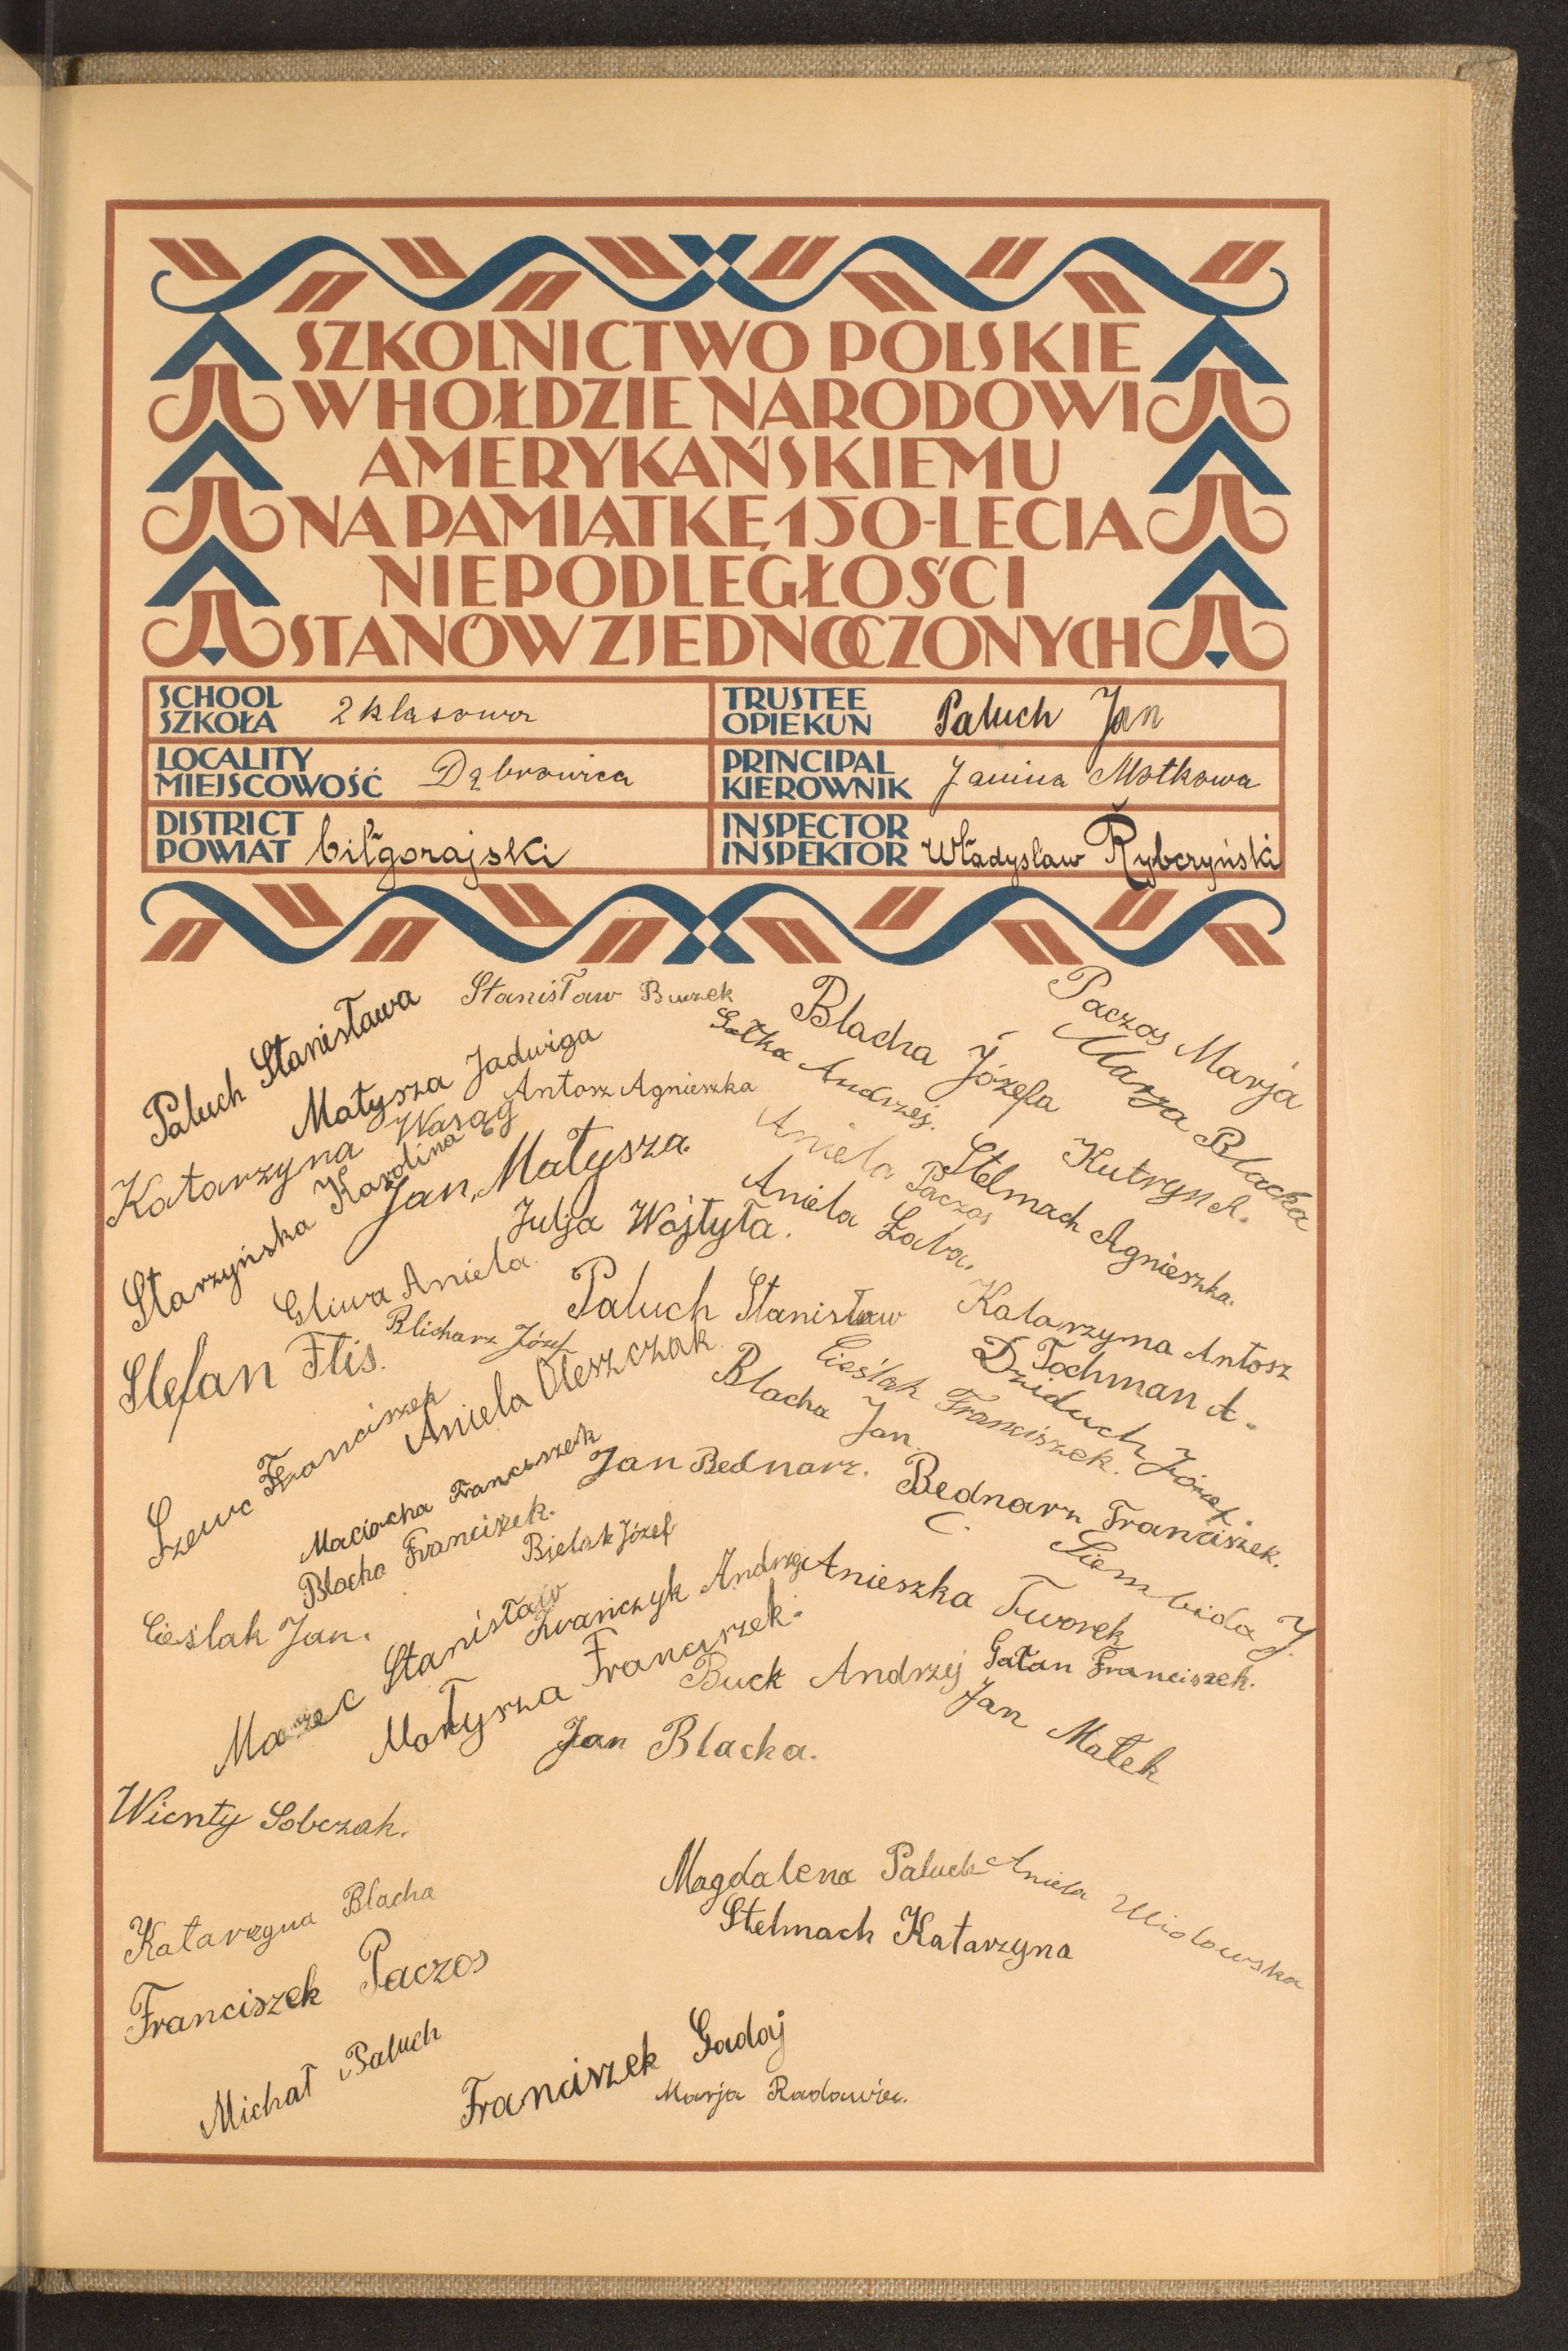 SZKOLNICTWO POLSKIE
W HOŁDZIE NARODOWI
AMERYKAŃSKIEMU
NA PAMIĄTKĘ 150-LECIA
NIEPODLEGŁOŚCI
STANÓW ZJEDNOCZONYCH
SCHOOL
SZKOŁA 2 klasowa
TRUSTEE
OPIEKUN Paluch Jan
LOCALITY
MIEJSCOWOŚĆ Dąbrowica
PRINCIPAL
KIEROWNIK Janina Motkowa
DISTRICT
POWIAT biłgorajski
INSPECTOR
INSPEKTOR Władysław Rybczyński
Paluch Stanisława
Stanisław Buczek
Blacha Józefa
Paczos Marja
Małysza Jadwiga
Gałka Andrzéj.
Marja Blacha
Antosz Agnieszka
Katarzyna Wasąg
Starzyńska Karolina
Jan Małysza.
Aniela Paczos
Kutryn A.
Stelmach Agnieszka.
Julja Wojtyła.
Aniela Łaba.
Gliwa Aniela.
Paluch Stanisław
Katarzyna Antosz
Blicharz Józef
Stefan Flis.
Tochman A.
Aniela Oleszczak.
Cieślak Franciszek.
Dziduch Józef.
Blacha Jan.
Szewc Franciszek
Maciocha Franciszek
Jan Bednarz.
Bednarz Franciszek.
Blacha Franciszek.
Bielak Józef
Siembida J.
Cieślak Jan.
Andrzej
Anieszka Tworek
Marzec Stanisław
Małysza Franciszek.
Buck Andrzej
Gałan Franciszek.
Jan Małek
Jan Blacha.
Wicnty Sobczak.
Magdalena Paluch
Aniela
Katarzyna Blacha
Stelmach Katarzyna
Franciszek Paczos
Michał Paluch
Franciszek Gadaj
Marja Radawiec.